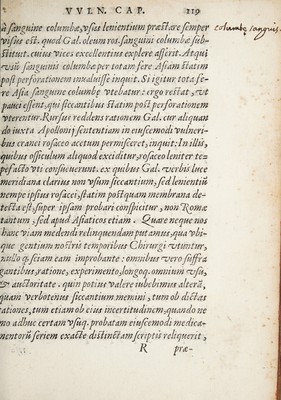 VVLN. CAP. 129
ũ sanguine columbæ, vsus lenientium præstare semper
visus est. quod Gal. oleum ros. sanguini columbæ sub-
stituit. cuius vices excellentius explere asserit. Atqui
vsũ sanguinis columbæ per totam fere Asiam statim
post perforationem inualuisse inquit. Si igitur tota fe
re Asia sanguine columbę vtebatur: ergo restat, vt
pauci essent, qui siccantibus statim post perforationem
vterentur. Rursus reddens rationem Gal. cur aliquan
do iuxta Apollonij sententiam in eiuscemodi vulneri-
bus cranei rosaceo acetum permisceret, inquit: In illis,
quibus ossiculum aliquod exciditur, rosaceo leniter te-
pefacto vti consueuerunt. ex quibus Gal. verbis luce
meridiana clarius non vsum siccantium, sed lenientiũ
nempe ipsius rosacei, statim postquam membrana de-
tecta est, super ipsam probari conspicitur, non Romæ
tantum, sed apud Asiaticos etiam. Quare neque nos
hanc viam medendi relinquendam putamus, qua vbi-
que gentium nostris temporibus Chirurgi vtuntur,
nullo q; sciam eam improbante: omnibus vero suffra
gantibus, ratione, experimento, longoq. omnium vsu,
& auctoritate. quin potius valere iubebimus alterã,
quam verbotenus siccantium memini, tum ob dictas
rationes, tum etiam ob eius incertitudinem, quando ne
mo adhuc certam vsuq. probatam eiuscemodi medica-
mentorũ seriem exacte distinctam scriptis reliquerit,
R præ-
columbę sanguis.